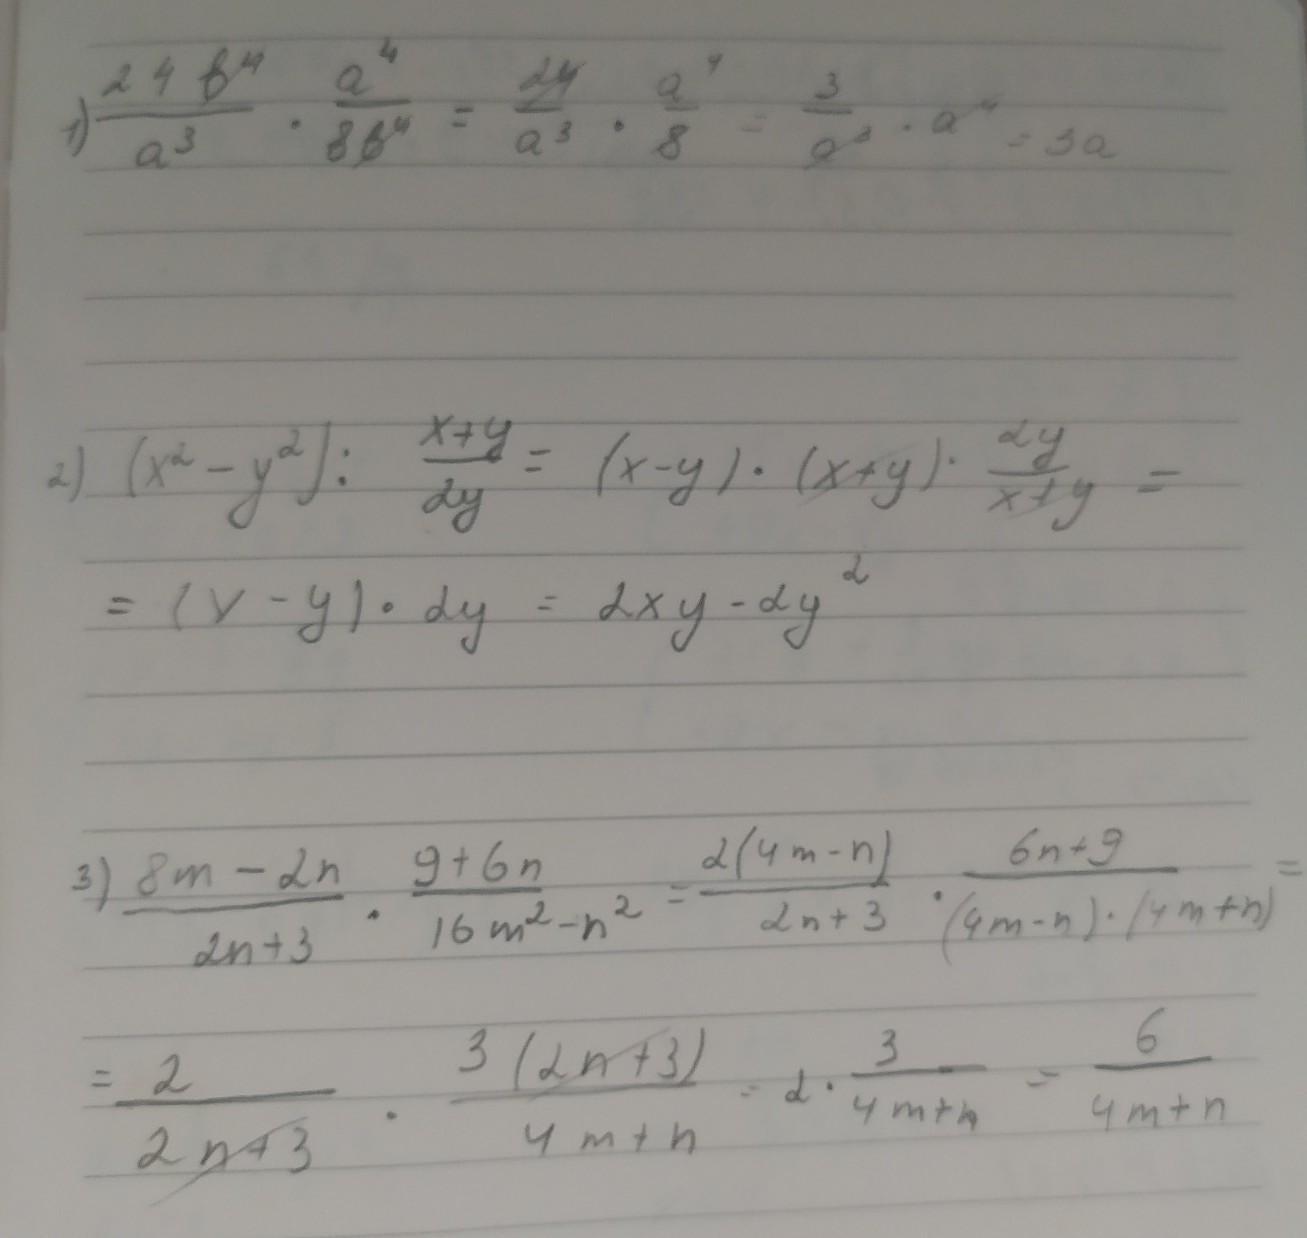 1) 24b⁴/a³ · a⁴/8b⁴ = 24/a³ · a⁴/8 = 3/a³ · a⁴ = 3a
2) (x² - y²) : x+y/2y = (x-y) · (x+y) · 2y/x+y =
= (x - y) · 2y = 2xy - 2y²
3) 8m - 2n/2n+3 · 9+6n/16m²-n² = 2(4m-n)/2n+3 · 6n+9/(4m-n)·(4m+n) =
= 2/2n+3 · 3(2n+3)/4m+n = 2 · 3/4m+n = 6/4m+n